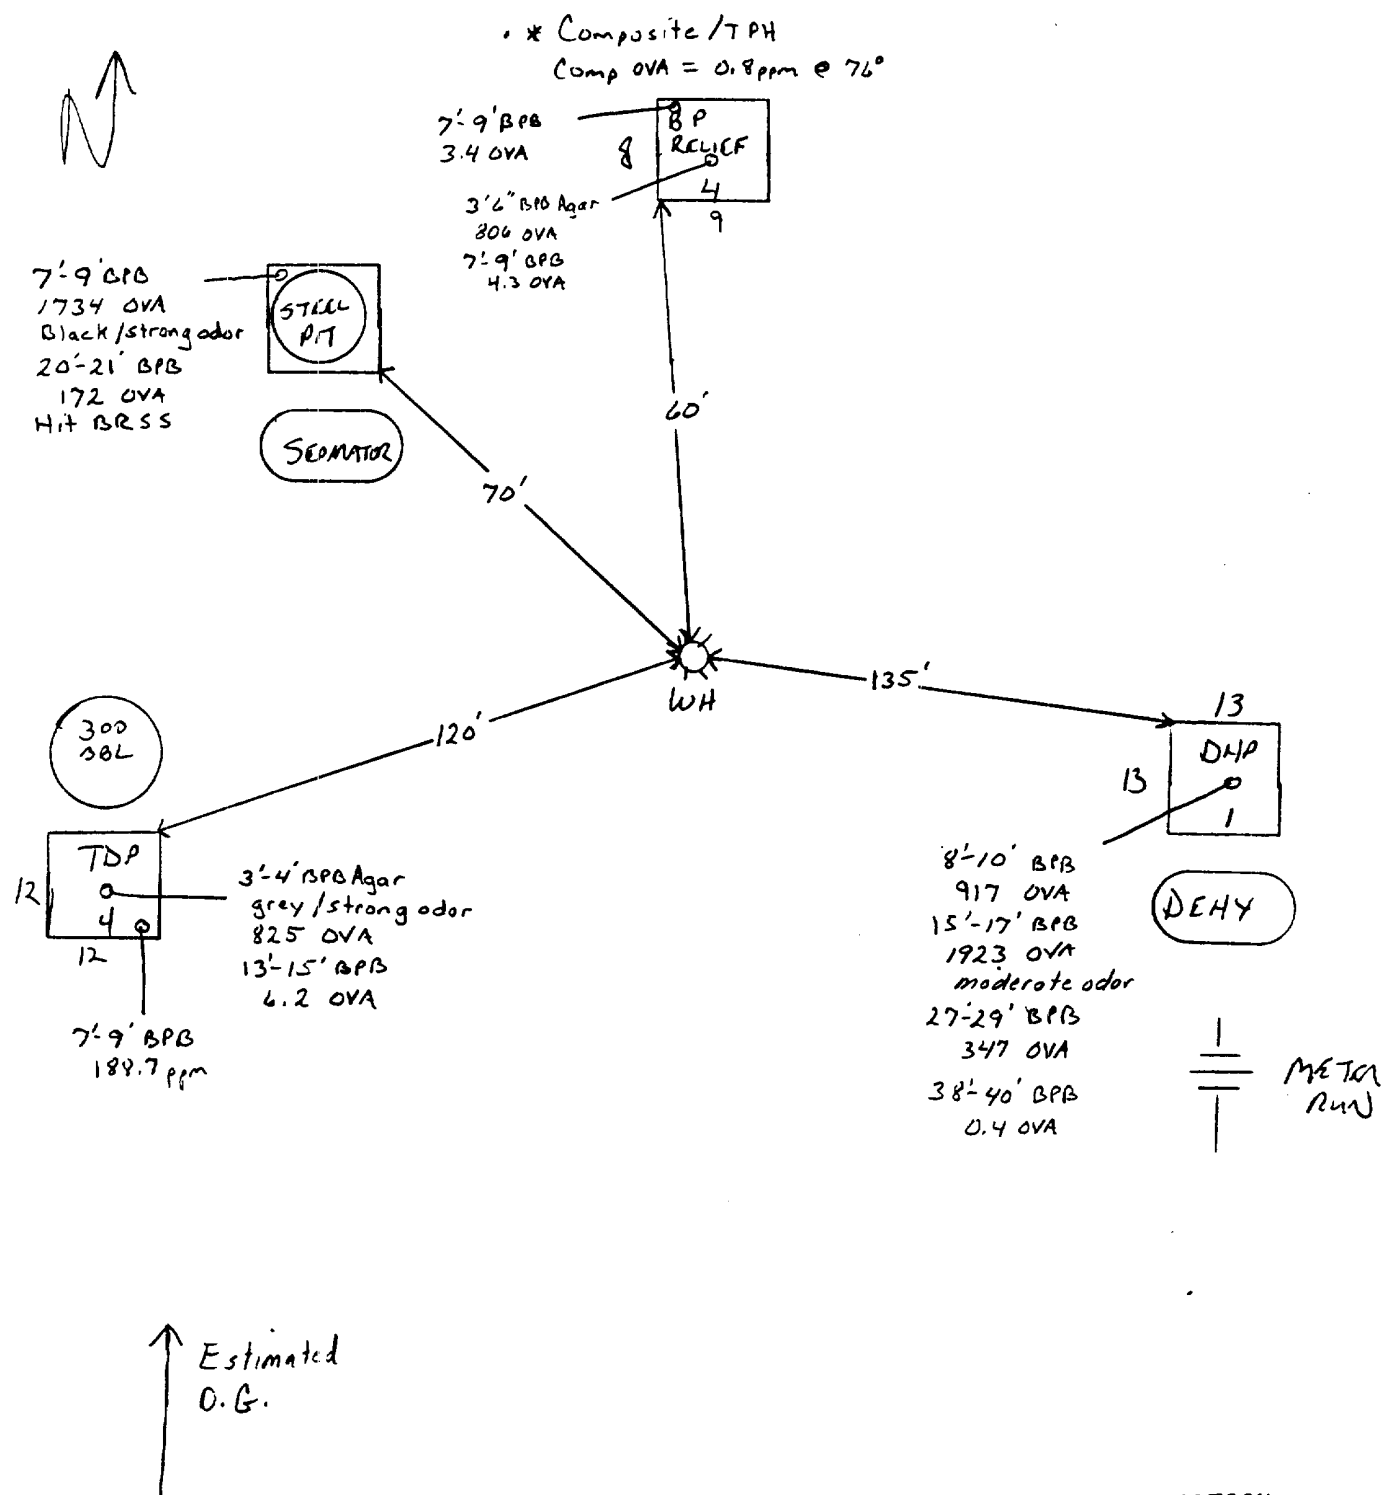 N
* Composite/TPH
Comp OVA = 0.8ppm @ 76°
7'-9' BPB
3.4 OVA
8
BP
RELIEF
4
9
3'6" BPB Agar
806 OVA
7'-9' BPB
4.3 OVA
7'-9' BPB
1734 OVA
Black/strong odor
20'-21' BPB
172 OVA
Hit BRSS
STEEL
PIT
SEPARATOR
60'
70'
WH
135'
120'
300
BBL
TDP
12
4
12
3'-4' BPB Agar
grey/strong odor
825 OVA
13'-15' BPB
6.2 OVA
7'-9' BPB
188.7 ppm
13
DHP
13
1
8'-10' BPB
917 OVA
15'-17' BPB
1923 OVA
moderate odor
27'-29' BPB
347 OVA
38'-40' BPB
0.4 OVA
DEHY
METER
RUN
Estimated
D.G.